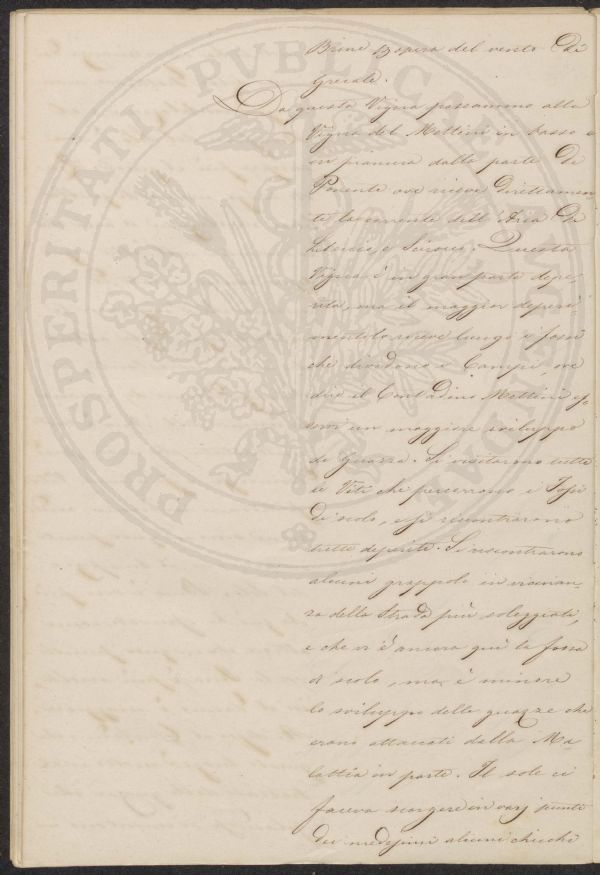 Brine opera del vento Di
Grecale.
Da questa Vigna passammo alla
Vigna del Mettini in basso e
in pianura dalla parte Di
Ponente ove riceve direttamen
te la corrente dell'Aria Di
Libeccio, e Scirocco. Questa
Vigna è in gran parte depe,
rita, ma il maggior deperi
mento lo riceve lungo i fossi
che dividono i Campi ove
dice il Contadino Mettini es,
servi un maggiore sviluppo
di Guazza. Si visitarono tutte
le Viti che percorrono i Fossi
Di scolo, e si riscontrarono
tutte deperite. Si riscontrarono
alcuni grappoli in vicinan,
za della Strada più soleggiati,
e che vi è ancora quì la fossa
di scolo, ma è minore
lo sviluppo delle guazze che
erano attaccati dalla Ma
lattia in parte. Il sole ci
faceva scorgere in varj punti
dei medesimi alcuni chicchi
PROSPERITATI PVBLICAE